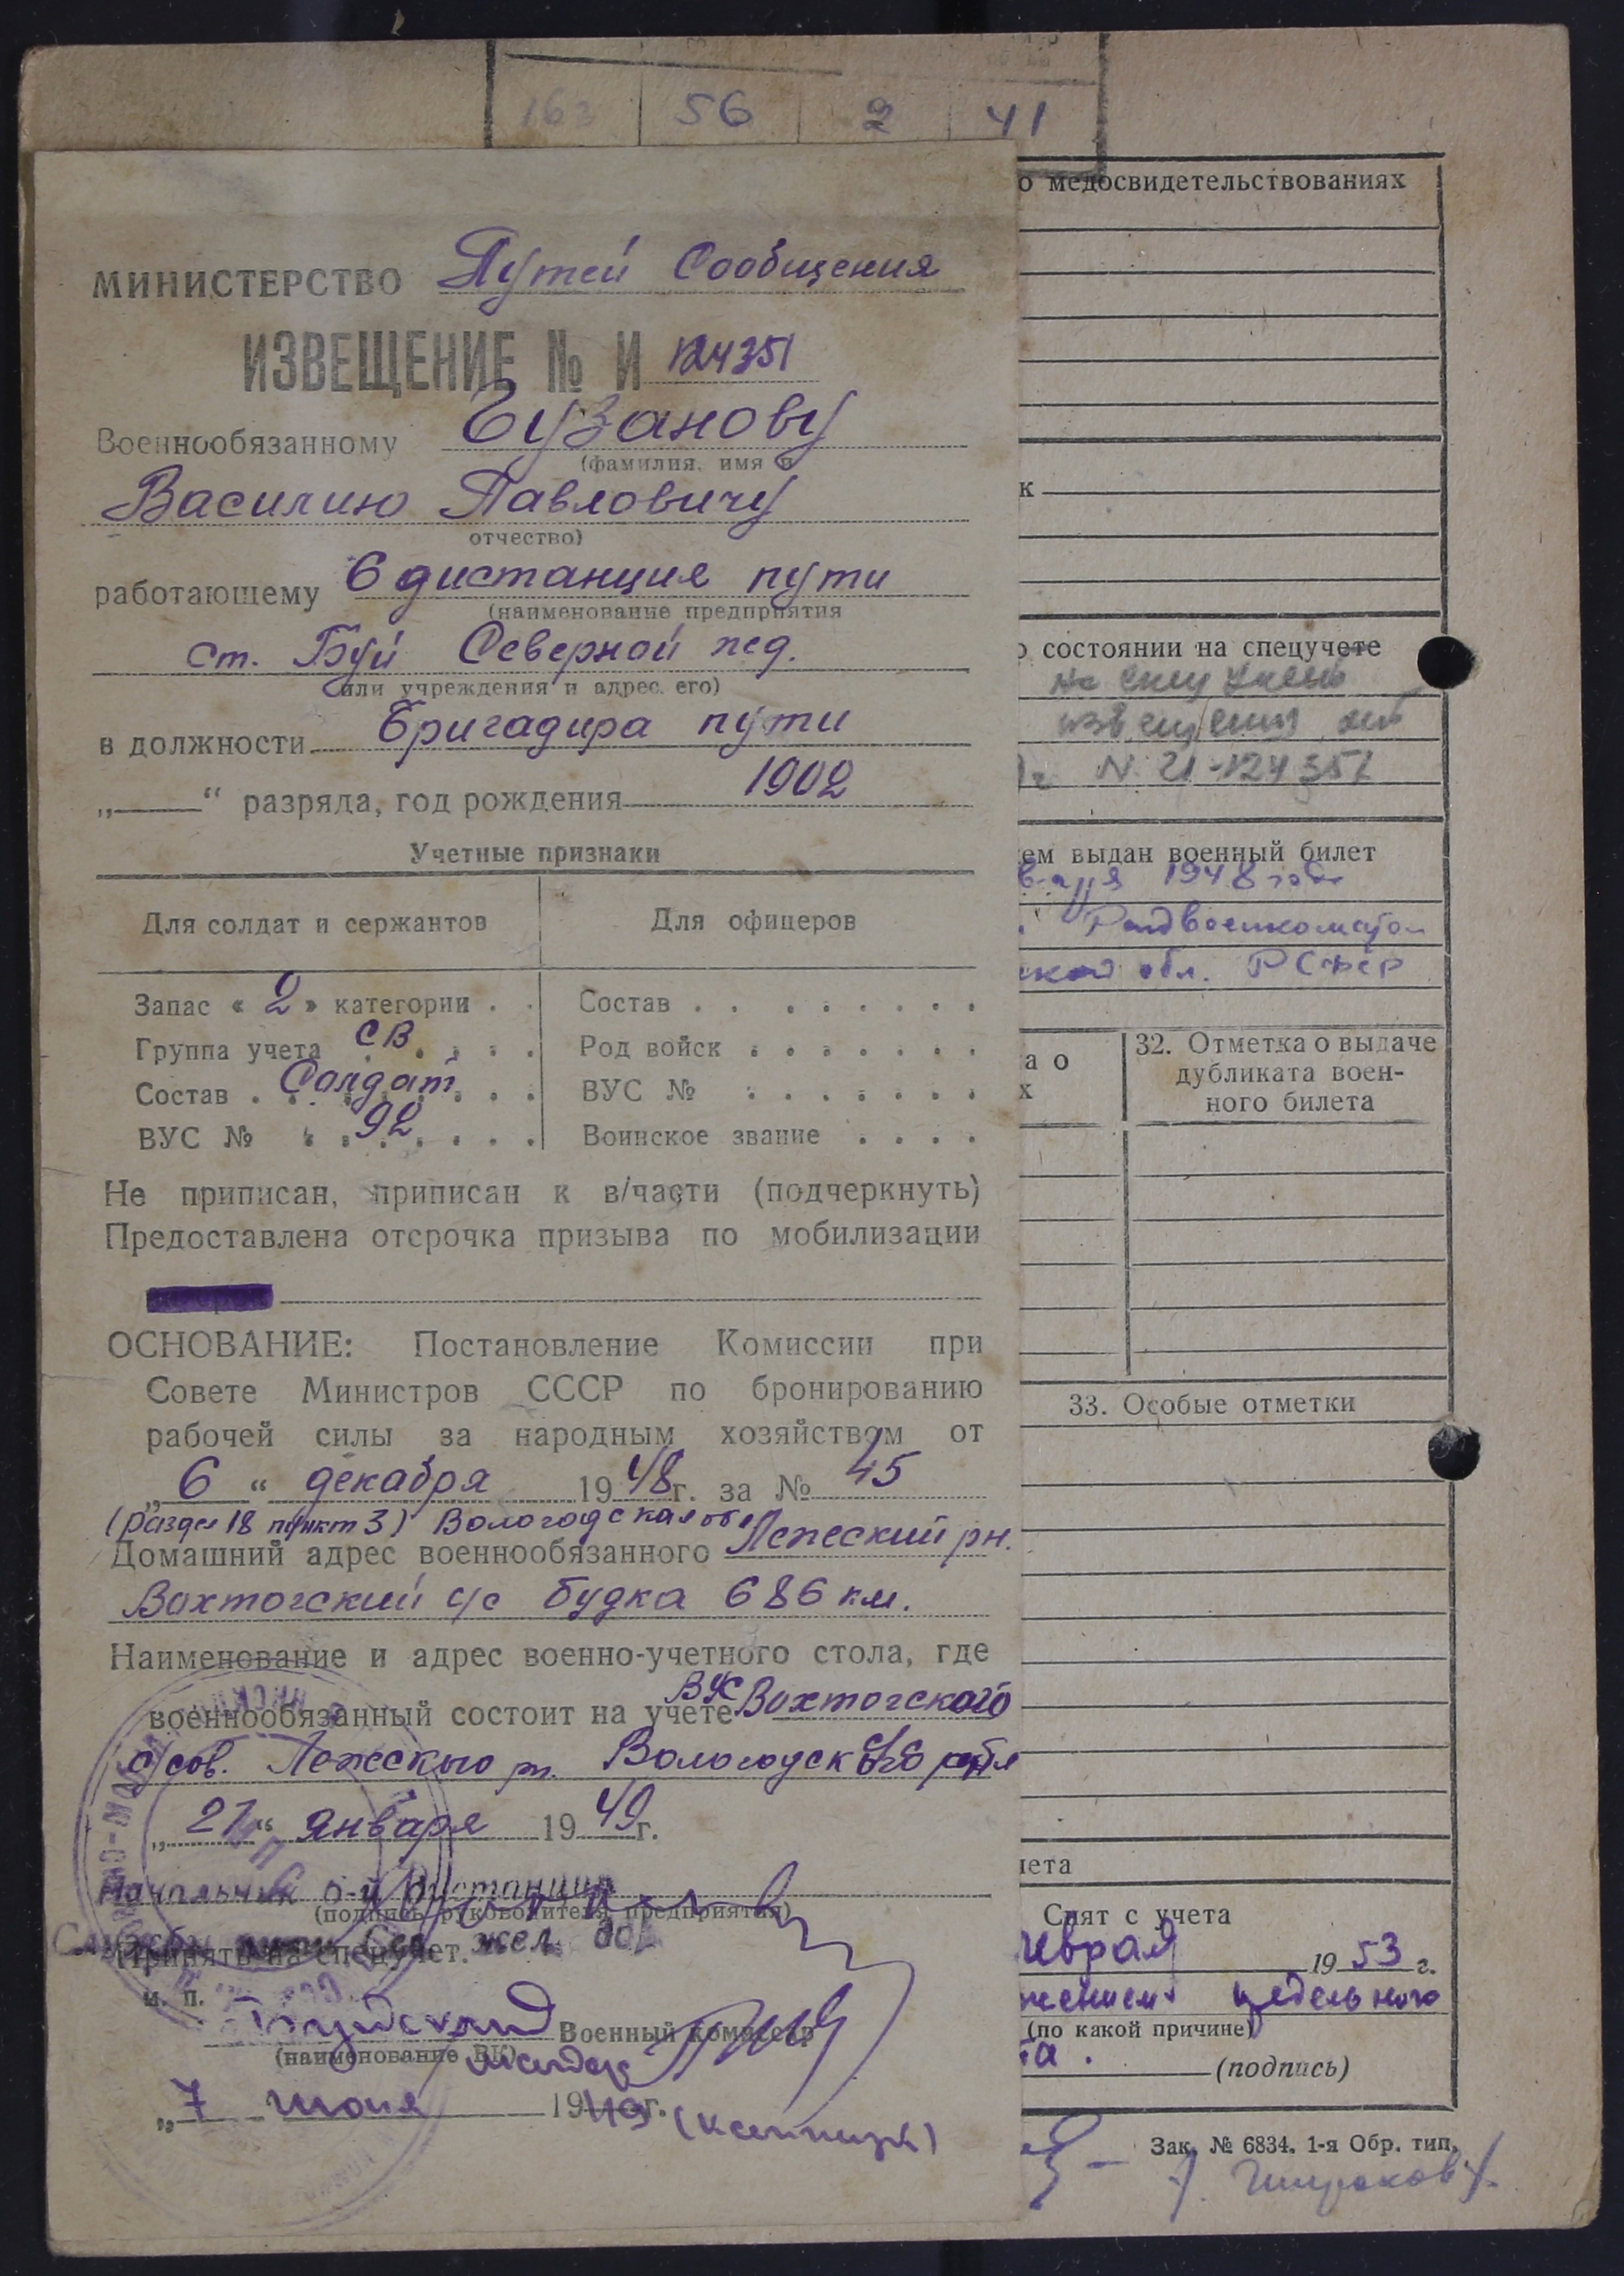 163 56 2 41
МИНИСТЕРСТВО Путей Сообщения
ИЗВЕЩЕНИЕ № И 124351
Военнообязанному Чузанову
(фамилия, имя и
Василию Павловичу
отчество)
работающему 6 дистанция пути
(наименование предприятия
ст. Буй Северной жд.
или учреждения и адрес его)
в должности Бригадира пути
„—“ разряда, год рождения 1902
Учетные признаки
Для солдат и сержантов Для офицеров
Запас « 2 » категории . . Состав . . . . . . . .
Группа учета СВ . . . . Род войск . . . . . . .
Состав . Солдат . . . ВУС № . . . . . . .
ВУС № 92 . . . . Воинское звание . . . .
Не приписан, приписан к в/части (подчеркнуть)
Предоставлена отсрочка призыва по мобилизации
ОСНОВАНИЕ: Постановление Комиссии при
Совете Министров СССР по бронированию
рабочей силы за народным хозяйством от
„ 6 “ декабря 19 48 г. за № 45
(раздел 18 пункт 3) Вологодская обл
Домашний адрес военнообязанного Лежский рн.
Вохтогский с/с будка 686 км.
Наименование и адрес военно-учетного стола, где
военнообязанный состоит на учете ВУС Вохтогского
с/сов. Лежского рн. Вологодск
„ 27 “ января 19 49 г.
Начальник 6-й Дистанции
(подпись руководителя предприятия)
Службы пути Сев. жел. дор
Принят на спецучет.
м. п.
Буйский Военный комиссар
(наименование ВК)
„ 7 июня 1949 г.
о медосвидетельствованиях
к
о состоянии на спецучете
на спец учете
извещения
г. N. И-124351
ем выдан военный билет
враля 1948 года
Райвоенкоматом
ской обл. РСФСР
а о
х
32. Отметка о выдаче
дубликата воен-
ного билета
33. Особые отметки
чета
Снят с учета
евраля 19 53 г.
жением предельного
(по какой причине)
та.
(подпись)
Зак. № 6834. 1-я Обр. тип.